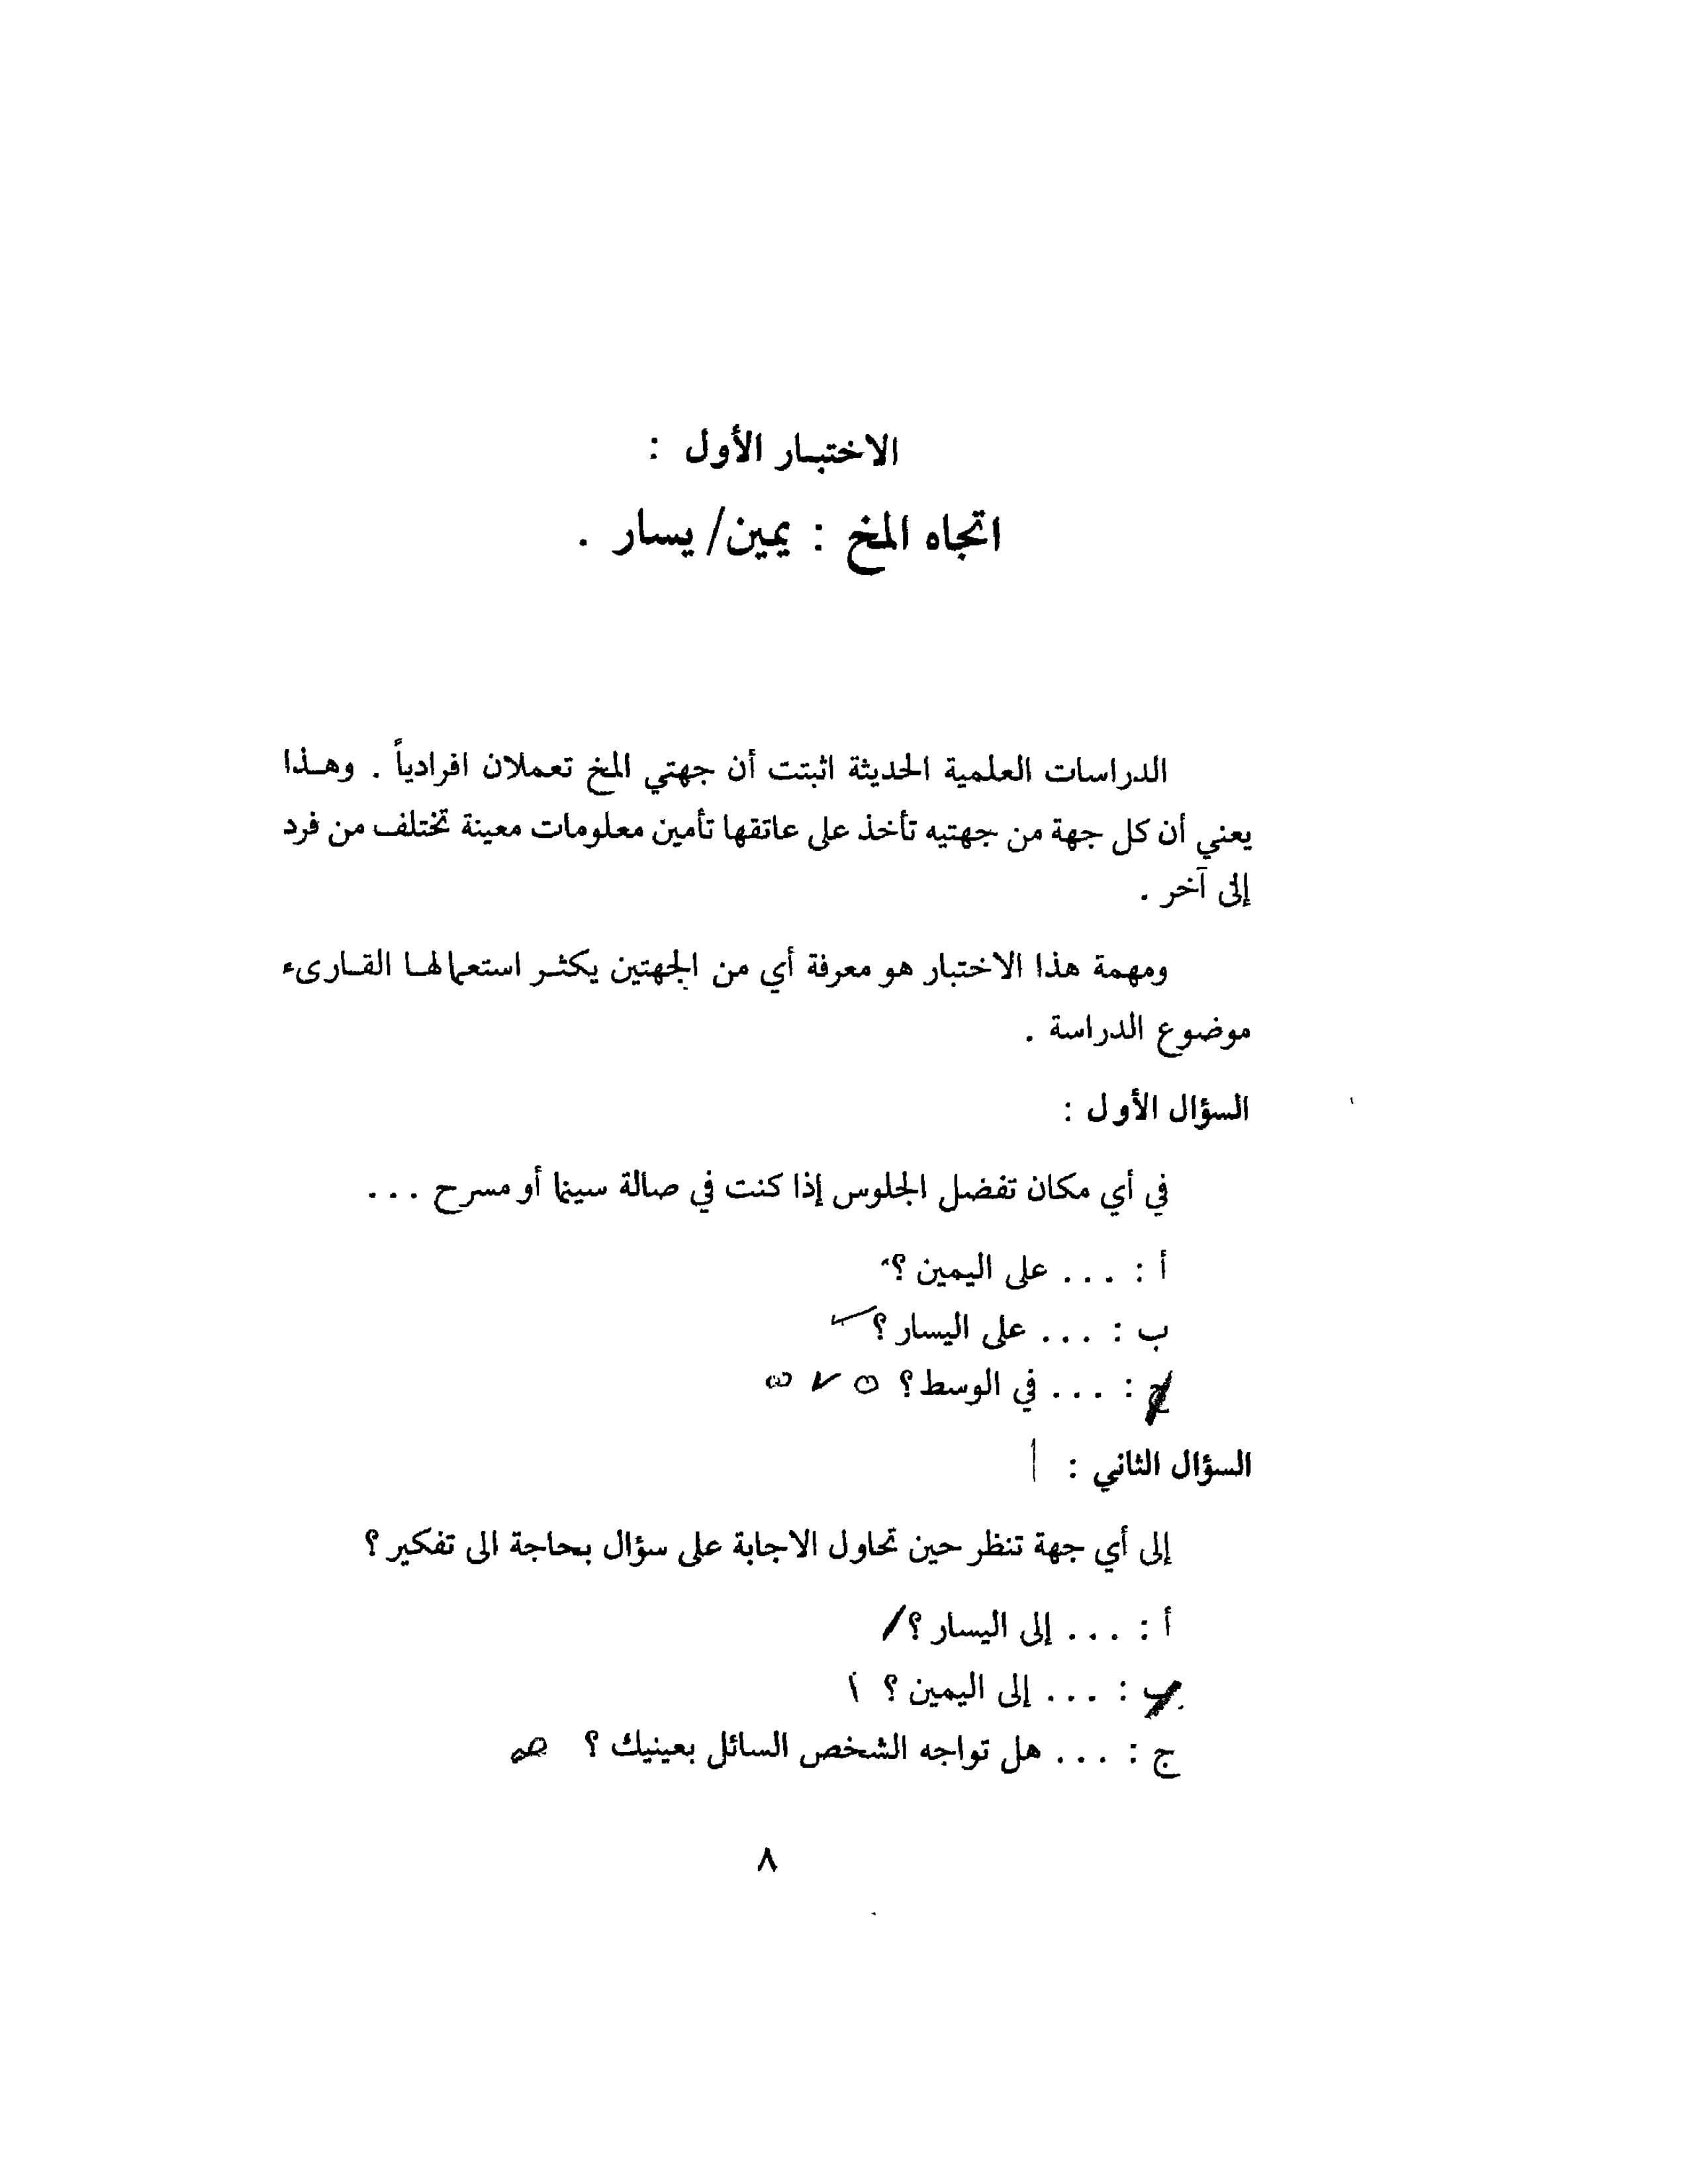 الاختبار الأول :
اتجاه المخ : يمين/ يسار .
الدراسات العلمية الحديثة اثبتت أن جهتي المخ تعملان افرادياً . وهذا
يعني أن كل جهة من جهتيه تأخذ على عاتقها تأمين معلومات معينة تختلف من فرد
إلى آخر .
ومهمة هذا الاختبار هو معرفة أي من الجهتين يكثر استعمالها القارىء
موضوع الدراسة .
السؤال الأول :
في أي مكان تفضل الجلوس إذا كنت في صالة سينما أو مسرح . . .
أ : . . . على اليمين ؟
ب : . . . على اليسار ؟
ج : . . . في الوسط ؟
السؤال الثاني :
إلى أي جهة تنظر حين تحاول الاجابة على سؤال بحاجة الى تفكير ؟
أ : . . . إلى اليسار ؟
ب : . . . إلى اليمين ؟
ج : . . . هل تواجه الشخص السائل بعينيك ؟
٨